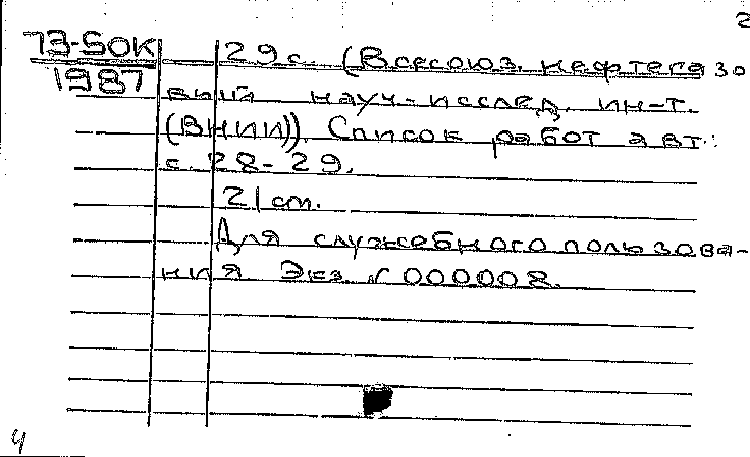 2
73-SOK 29 с. (Всесоюз. нефтегазо
1987
вый науч-исслед. ин-т.
(ВНИИ)). Список работ авт.:
с. 28-29.
21 cm.
Для служебного пользова-
ния Экз. № 000008.
4